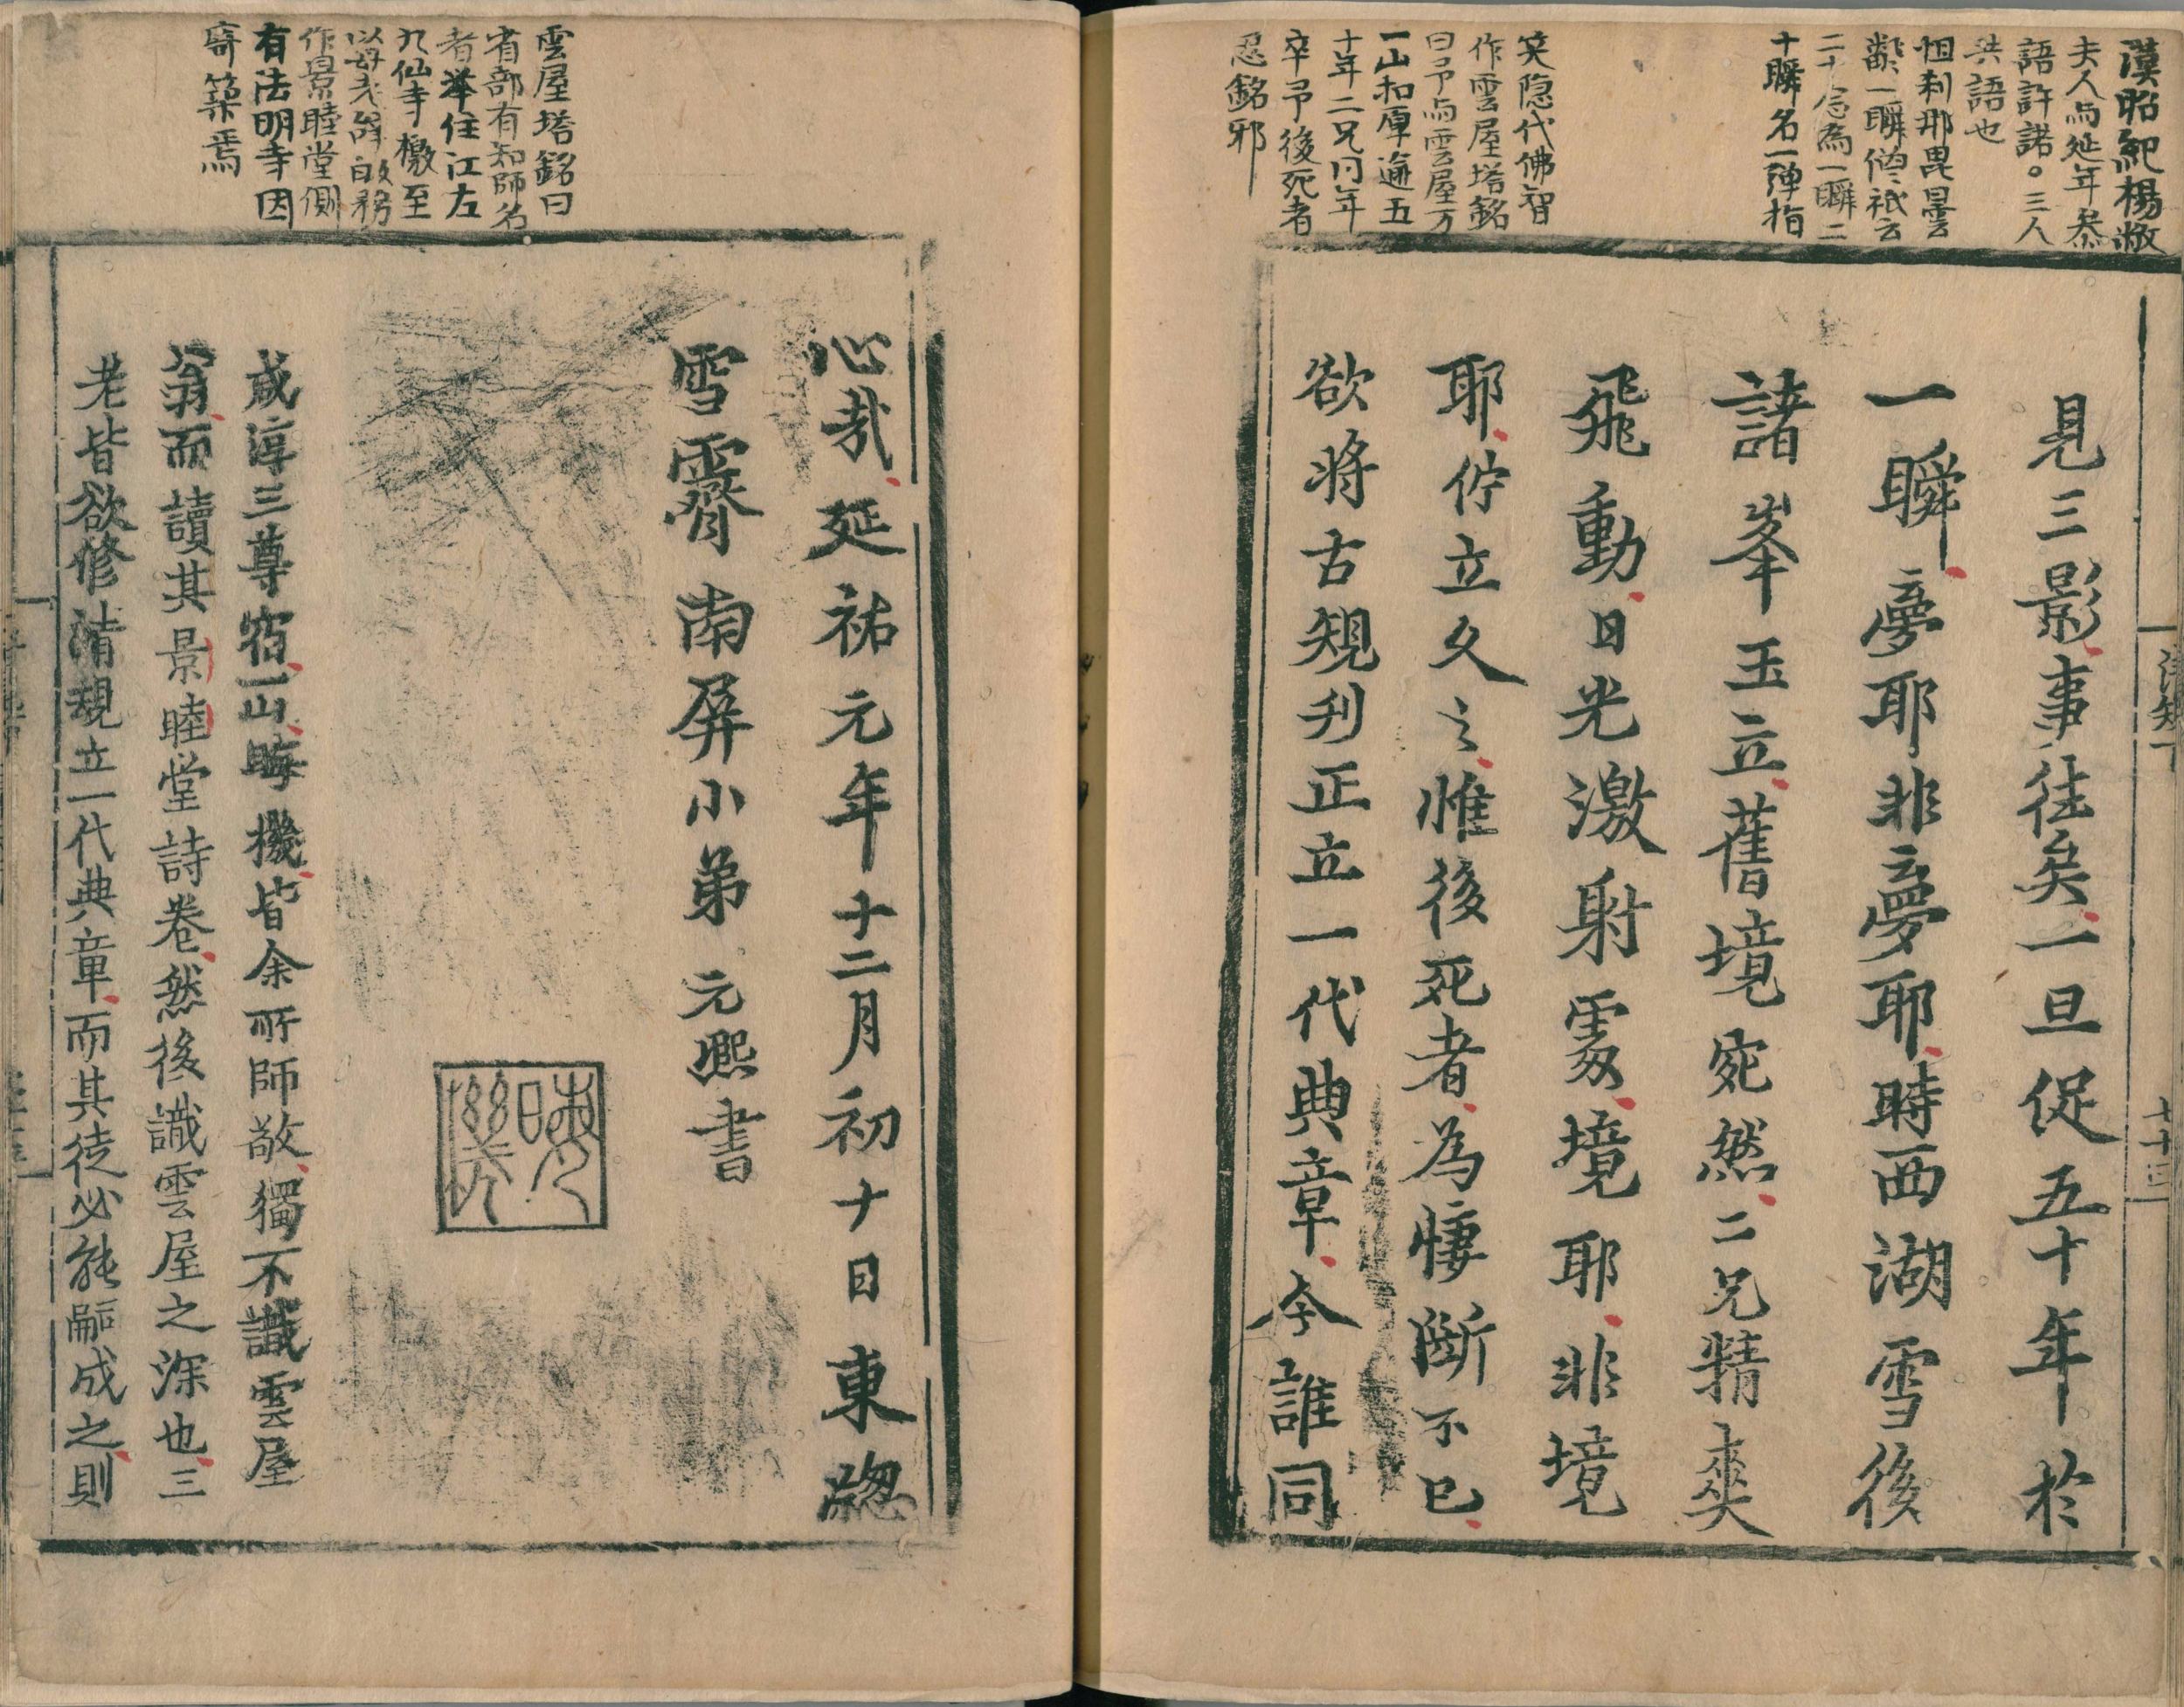 漢昭紀楊敞
夫人与延年參
語許諾。三人
共語也
怛刹那毘曇云
一瞬僧祇云
二十念為一瞬二
十瞬名一彈指
笑隱代佛智
作雲屋塔銘
曰予与雲屋万
一山和厚逾五
十年二兄同年
卒予後死者
忍銘邪
見三影事往矣一旦促五十年於
一瞬夢耶非夢耶時西湖雪後
諸峯玉立舊境宛然二兄精爽
飛動日光激射雪境耶非境
耶佇立久之惟後死者為悽斷不已
欲將古規刋正立一代典章今誰同
清規下
七十三
雲屋塔銘曰
省部有知師名
者举住江左
九仙寺檄至
以母老辞
作景睦堂側
有法明寺因
寄築焉
心哉延祐元年十二月初十日東
雪霽南屏小弟元熙書
晦機
咸淳三尊宿一山晦機皆余所師敬獨不識雲屋
翁而讀其景睦堂詩卷然後識雲屋之深也三
老皆欲修清規立一代典章而其徒必能嗣成之則